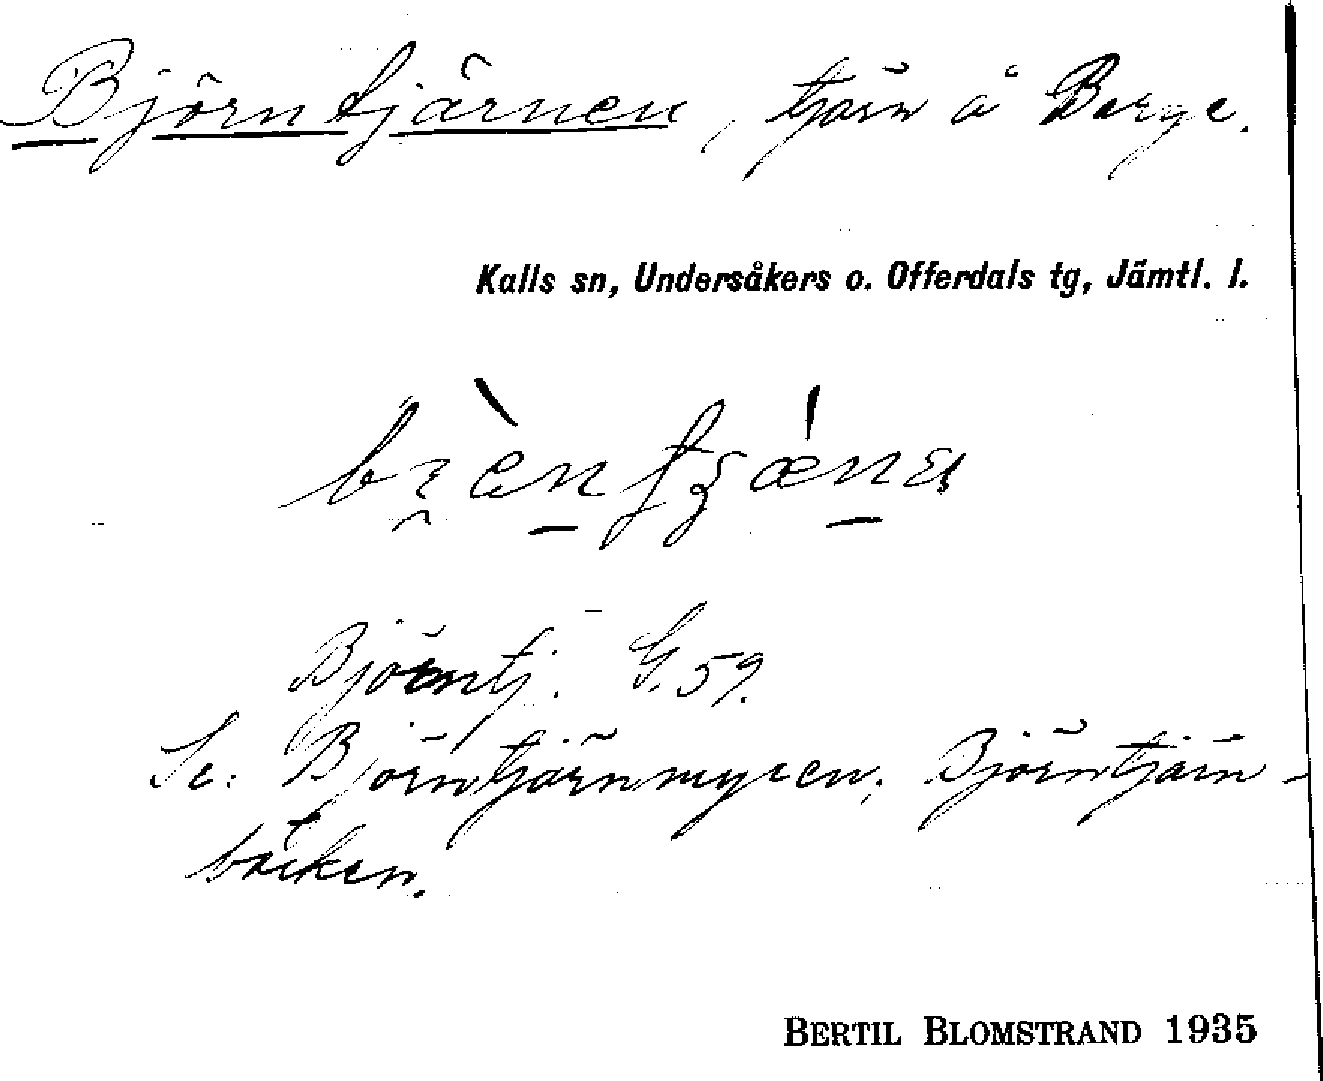 Björntjärnen, tjärn å Berge.
Kalls sn, Undersåkers o. Offerdals tg, Jämtl. l.
Björntj. G. 59.
Se: Björntjärnmyren, Björntjärn-
bäcken.
BERTIL BLOMSTRAND 1935